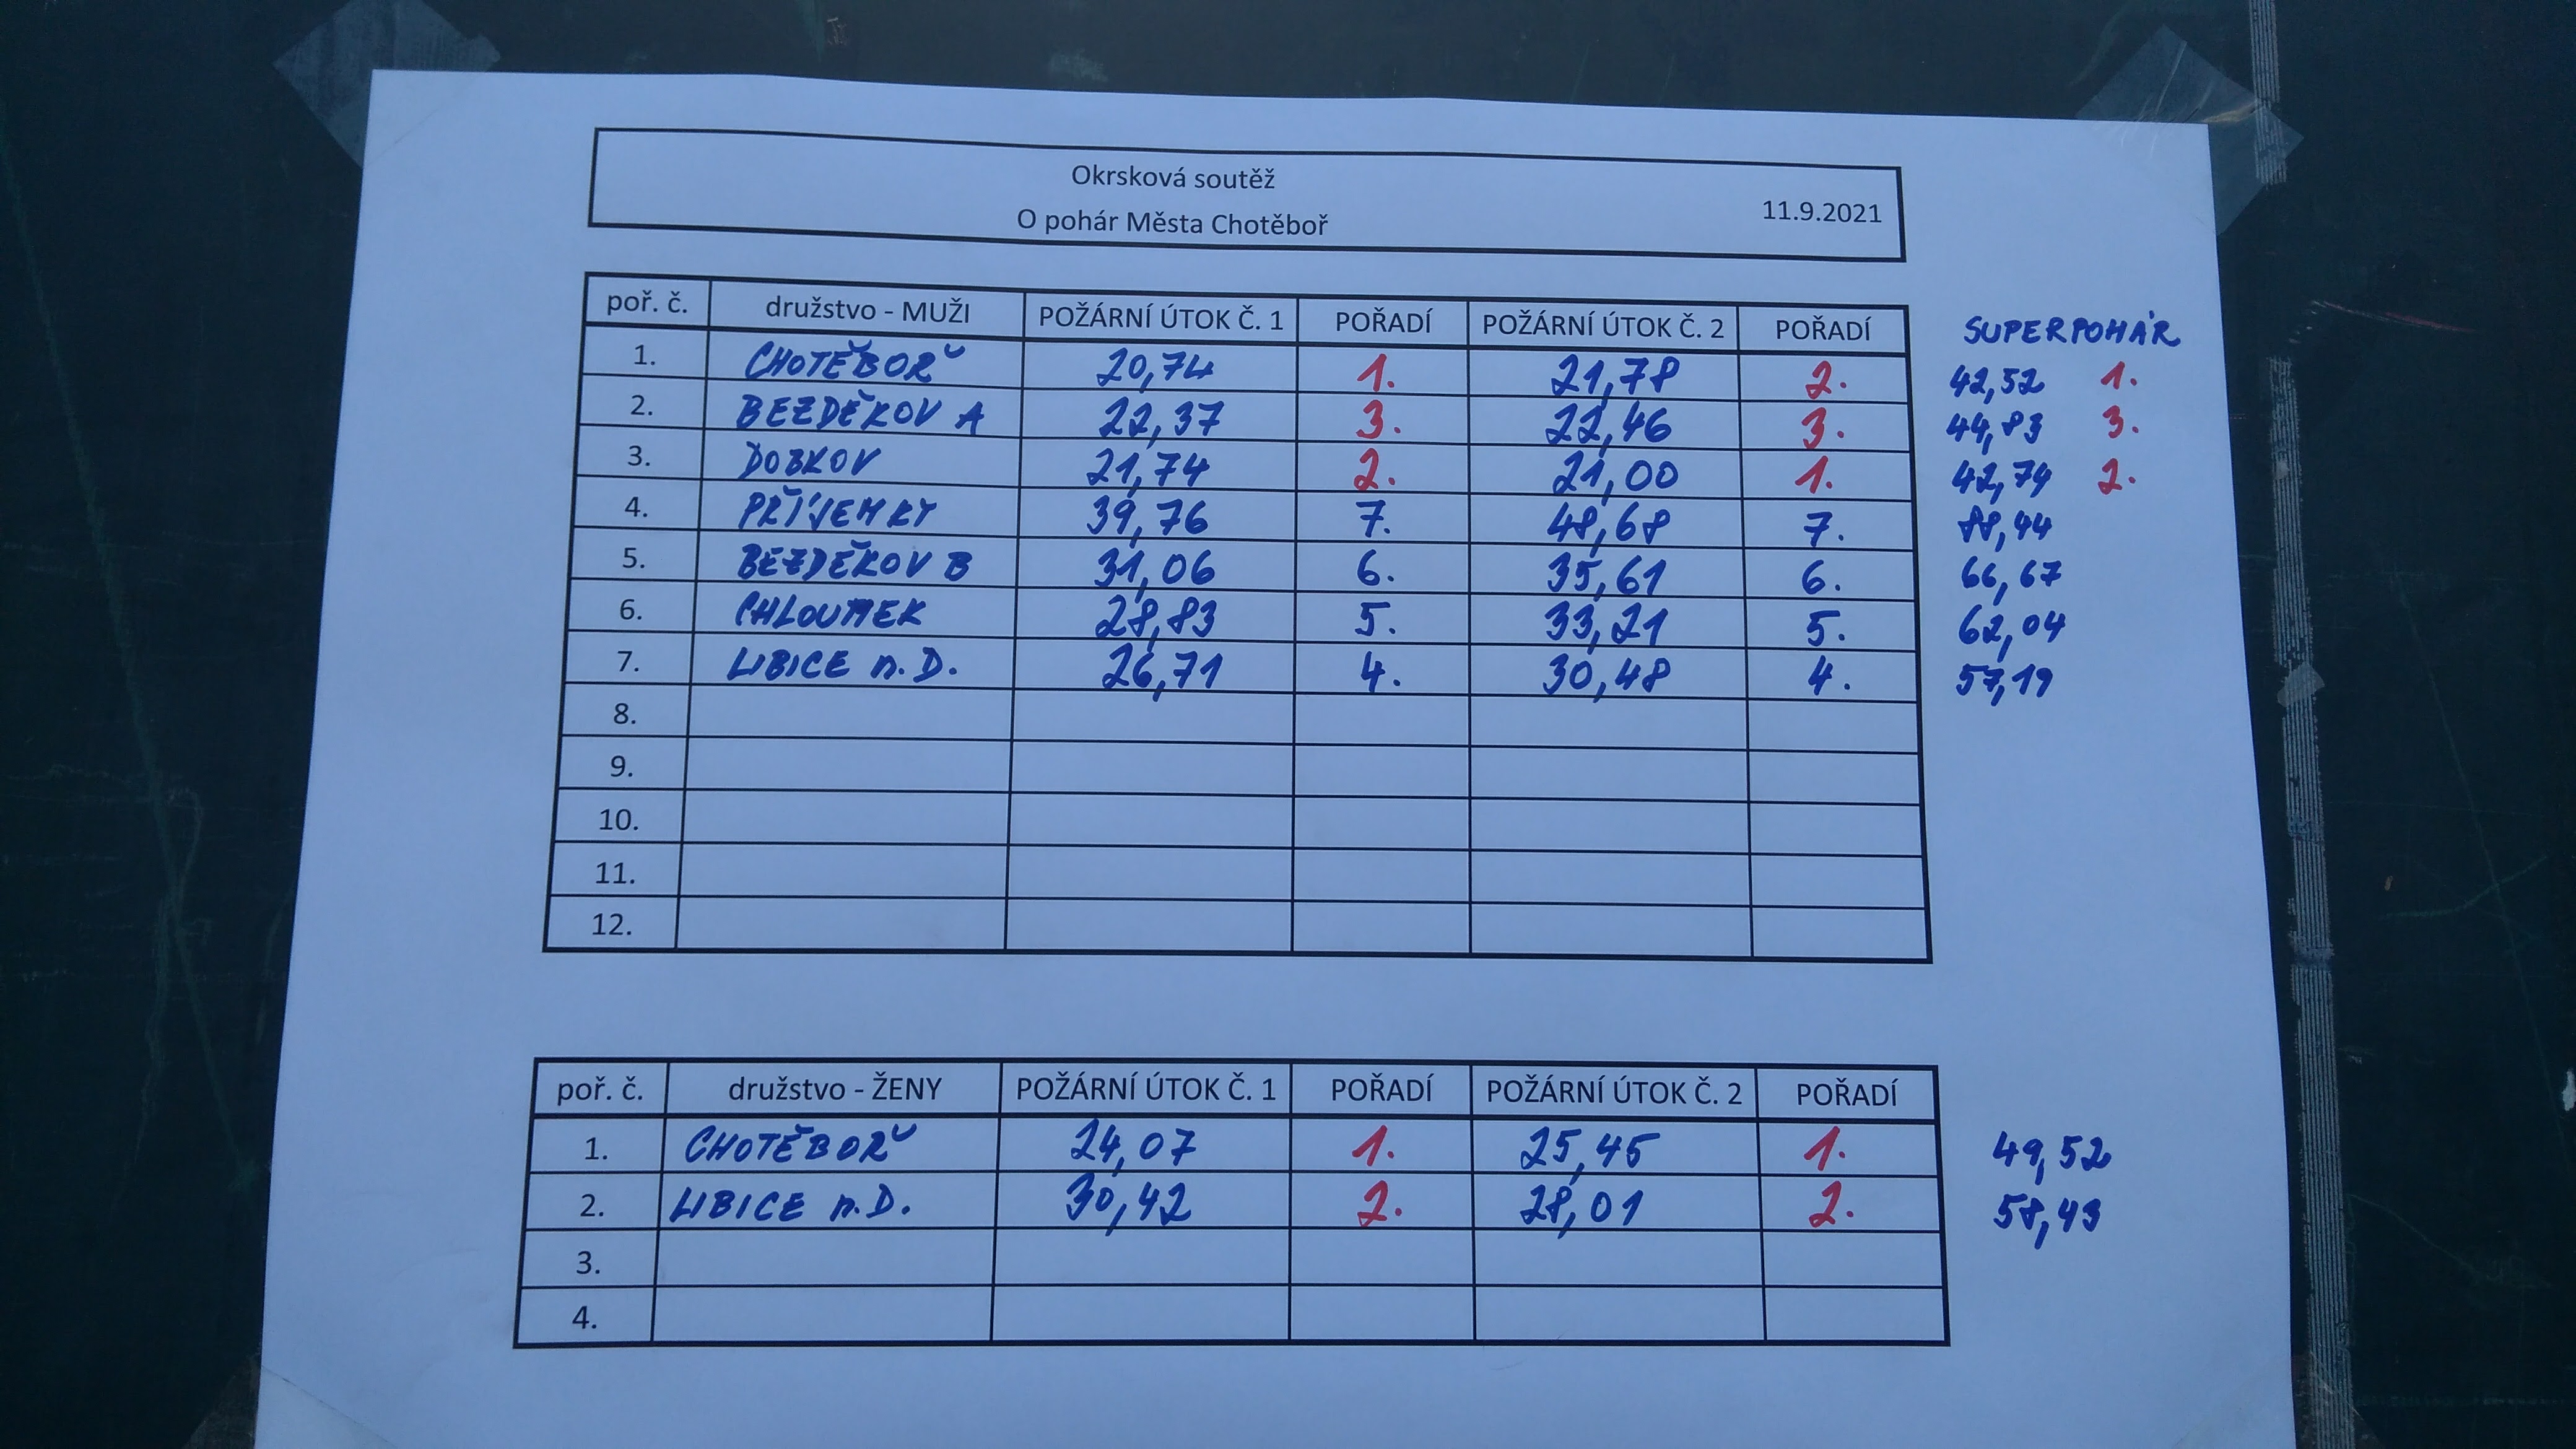 Okrsková soutěž
O pohár Města Chotěboř 11.9.2021
poř. č. družstvo - MUŽI POŽÁRNÍ ÚTOK Č. 1 POŘADÍ POŽÁRNÍ ÚTOK Č. 2 POŘADÍ SUPERPOHÁR
1. CHOTĚBOŘ 20,74 1. 21,78 2. 42,52 1.
2. BEZDĚKOV A 22,37 3. 22,46 3. 44,83 3.
3. DOBKOV 21,74 2. 21,00 1. 42,74 2.
4. PŘÍJEMKY 39,76 7. 48,68 7. 88,44
5. BEZDĚKOV B 31,06 6. 35,61 6. 66,67
6. CHLOUMEK 28,83 5. 33,21 5. 62,04
7. LIBICE n.D. 26,71 4. 30,48 4. 57,19
8.
9.
10.
11.
12.
poř. č. družstvo - ŽENY POŽÁRNÍ ÚTOK Č. 1 POŘADÍ POŽÁRNÍ ÚTOK Č. 2 POŘADÍ
1. CHOTĚBOŘ 24,07 1. 25,45 1. 49,52
2. LIBICE n.D. 30,42 2. 28,01 2. 58,43
3.
4.